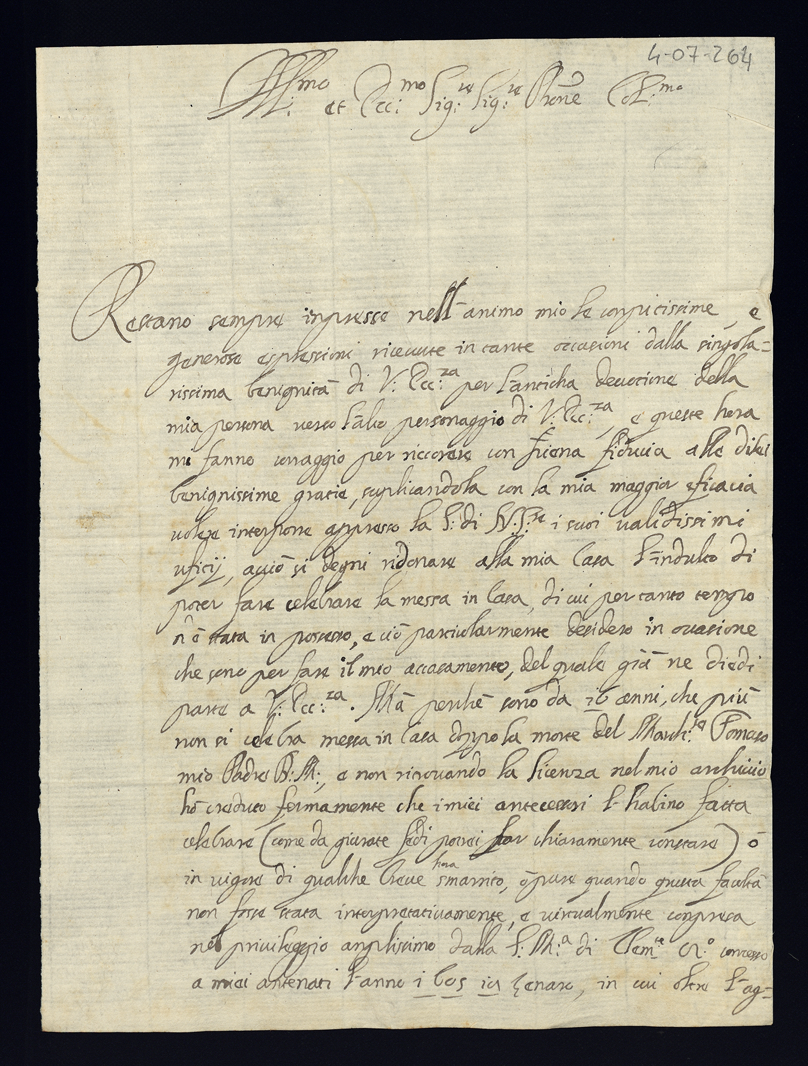 4-07-264
Ill:mo et Ecc:mo Sig:re Sig:re Prone Col:mo
Restano sempre inpresse nell'animo mio le conpitissime, e
generose espressioni riceuute in tante occasioni dalla singola=
rissima benignità di V: Ecc:za per l'anticha deuotione della
mia persona uerso l'alto personaggio di V: Ecc:za, e queste hora
mi fanno corraggio per riccorere con piena fiducia alle di lei
benignissime gratie, suplicandola con la mia maggior eficacia
uolere interpone appresso la S: di N: S:re i suoi ualidissimi
uficij, acciò si degni ridonare alla mia Casa l'indulto di
poter fare celebrare la messa in Casa, di cui per tanto tempo
n'è stata in possesso, e ciò particolarmente desidero in occasione
che sono per fare il mio accasamento, del quale già ne diedi
parte a V: Ecc:za. Mà perchè sono da 16 anni, che più
non si celebra messa in Casa doppo la morte del March:se Tomaso
mio Padre B: M:, e non ritrouando la licenza nel mio archiuio
hò creduto fermamente che i miei antecessori l'habino fatta
celebrare (come da giurate fedi potrei far chiaramente constare) ò
in uigore di qualche breue hora smarrito, ò pure quando questa facoltà
non fosse stata interpretatiuamente, e uirtualmente conpresa
nel priuileggio amplissimo dalla S: M:a di Clem:te concesso
a miei antenati l'anno 1605 19 Genaro, in cui oltre l'ag=